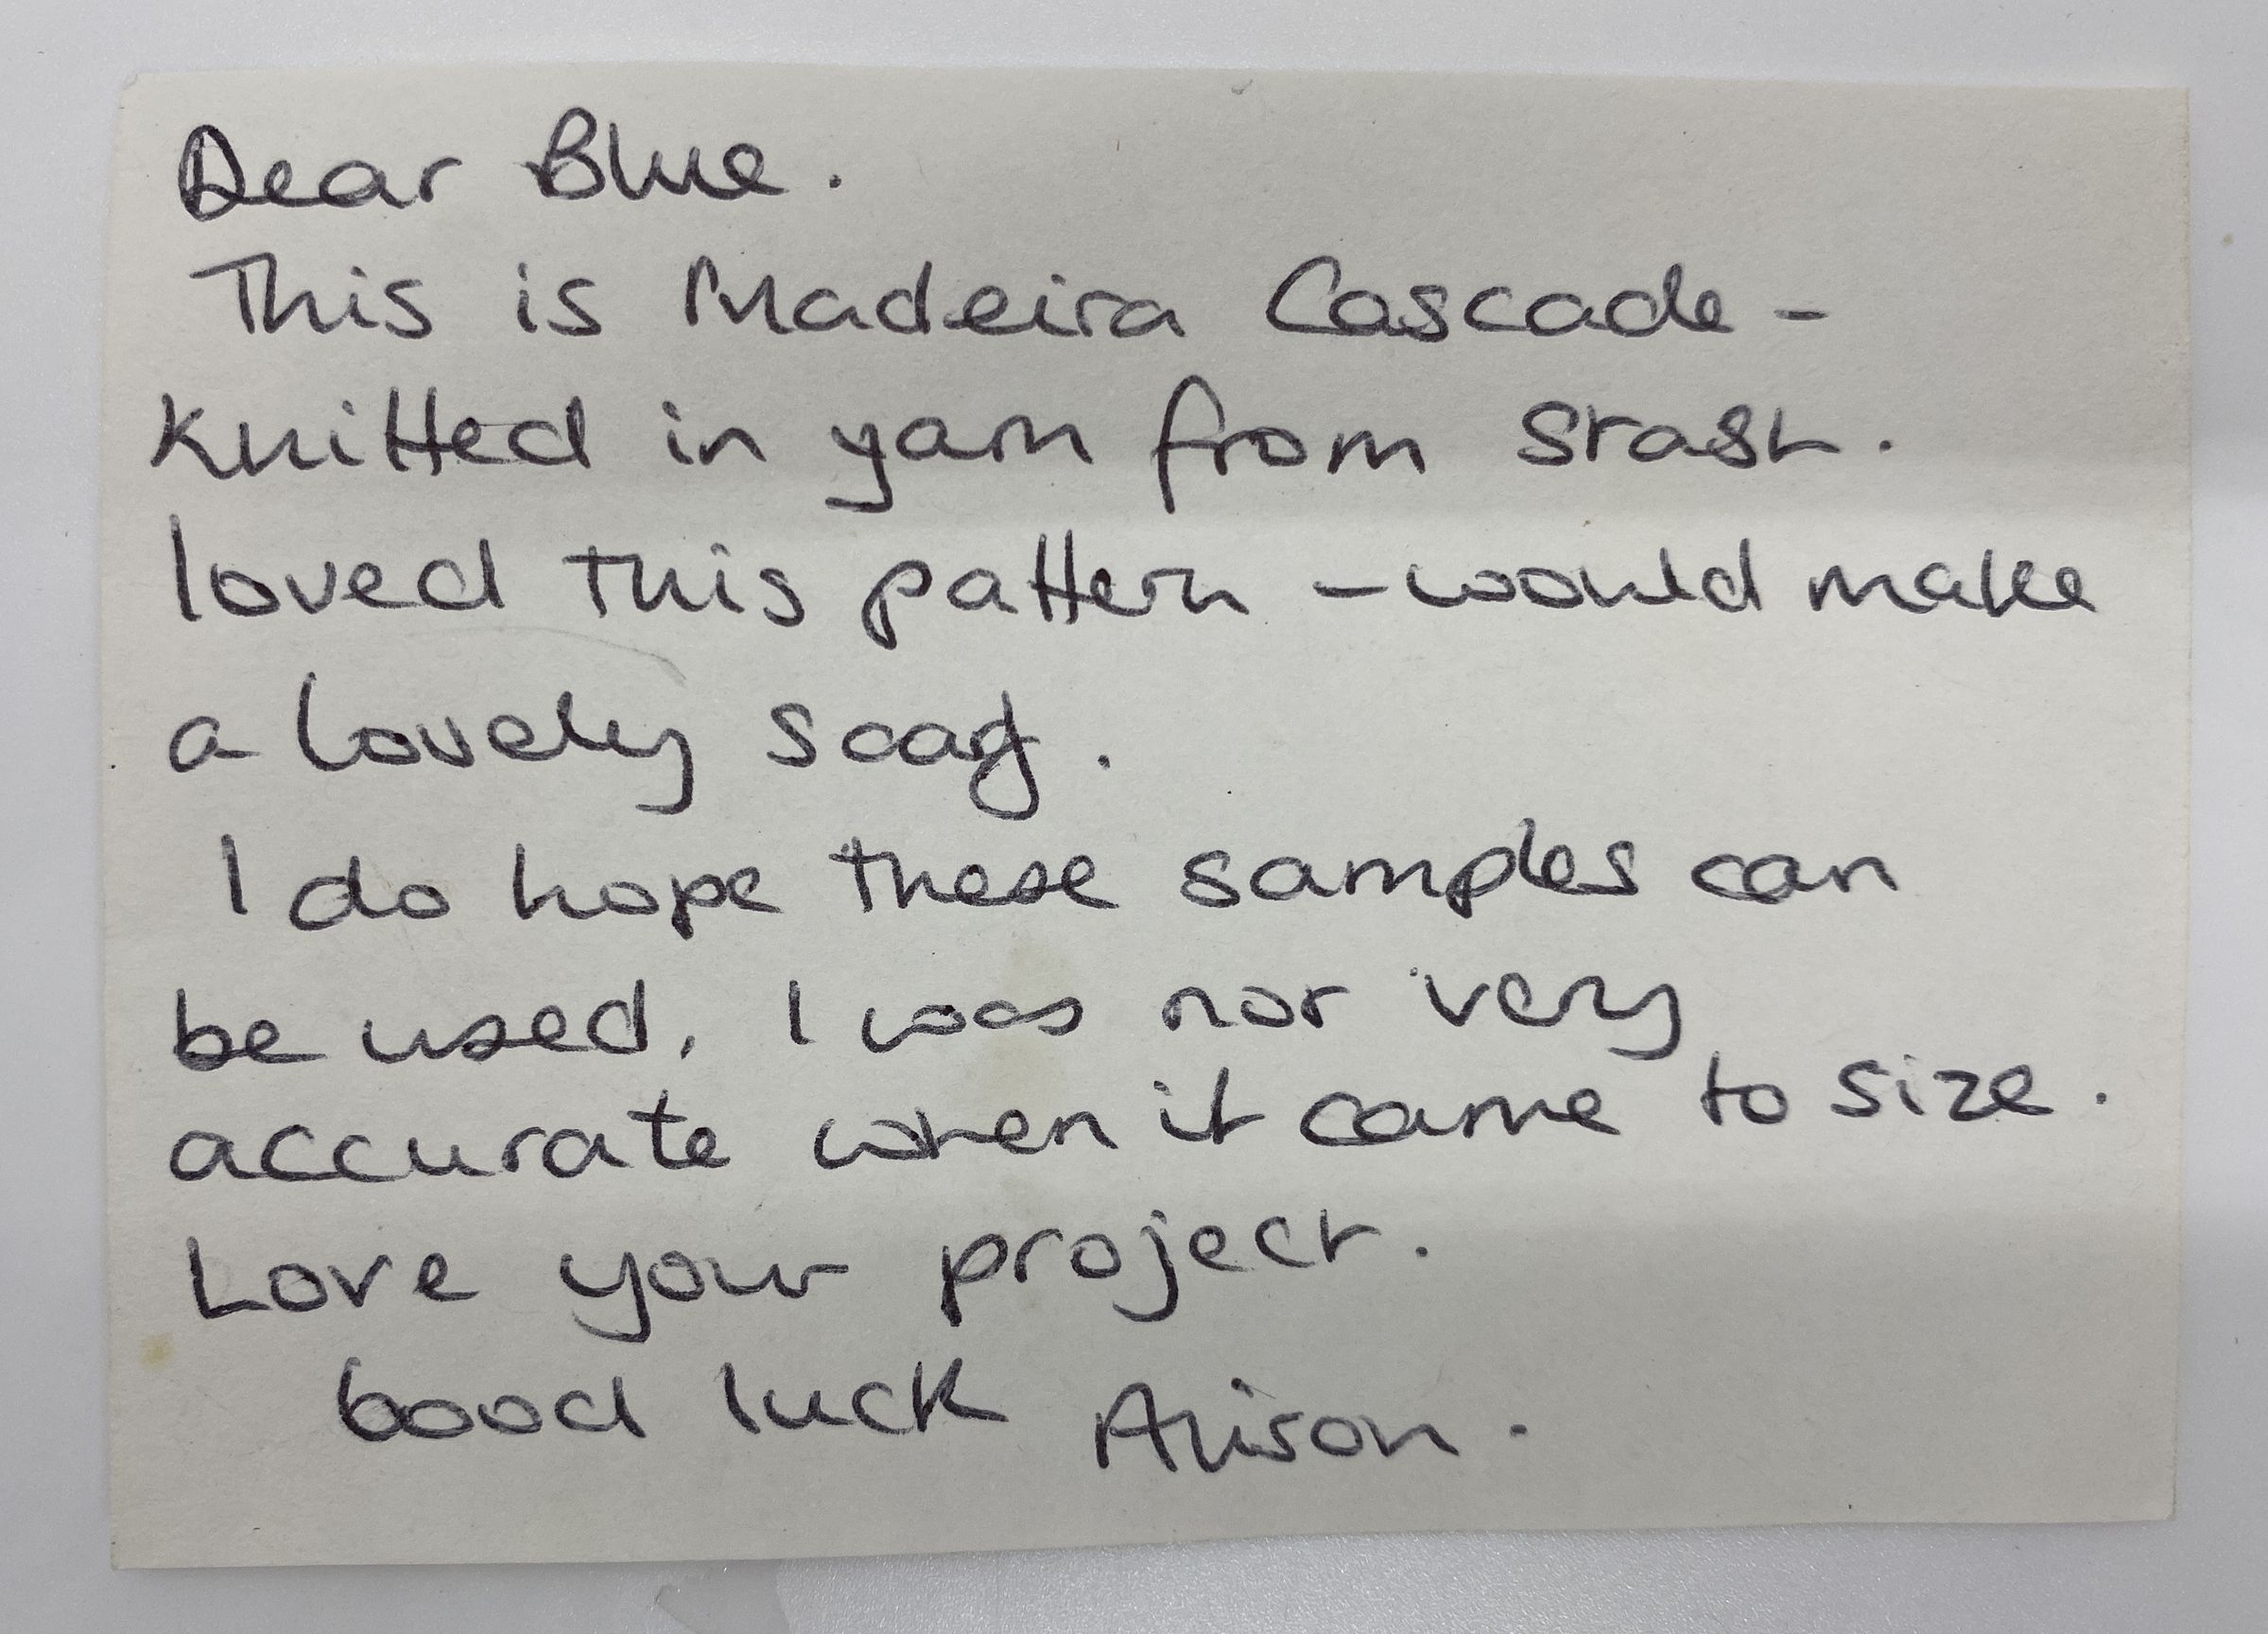 Dear Blue.
This is Madeira Cascade -
Knitted in yarn from stash.
loved this pattern - would make
a lovely scarf.
I do hope these samples can
be used, I was not very
accurate when it came to size.
Love your project.
Good luck Alison.